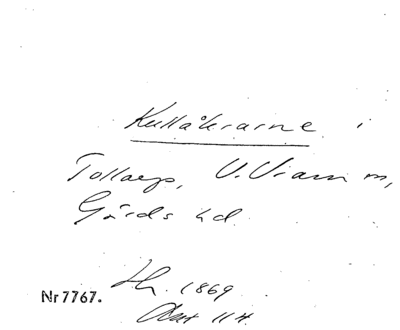 Kullåkrarne i
Tollarp, V. Vram m,
Gärds hd.
Nr 7767. Hh. 1869
Akt 114.